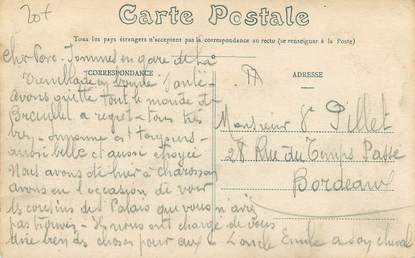 20f
Carte Postale
Tous les pays étrangers n'acceptent pas la correspondance au recto (se renseigner à la Poste)
CORRESPONDANCE
ADRESSE
Cher Père - Sommes en gare de La
Tremblade en bonne santé -
avons quitté tout le monde de
Breuillet a regret - tous très
bien - Suzanne est toujours
aussi belle et aussi
Nous avons hier a
avons eu l'occasion de voir
les cousins des Palais que vous n'avez
pas - ils nous ont chargé de vous
dire bien des choses pour eux a L'oncle Emile a son cheval
Monsieur Pillet
28 Rue du Temps Passé
Bordeaux